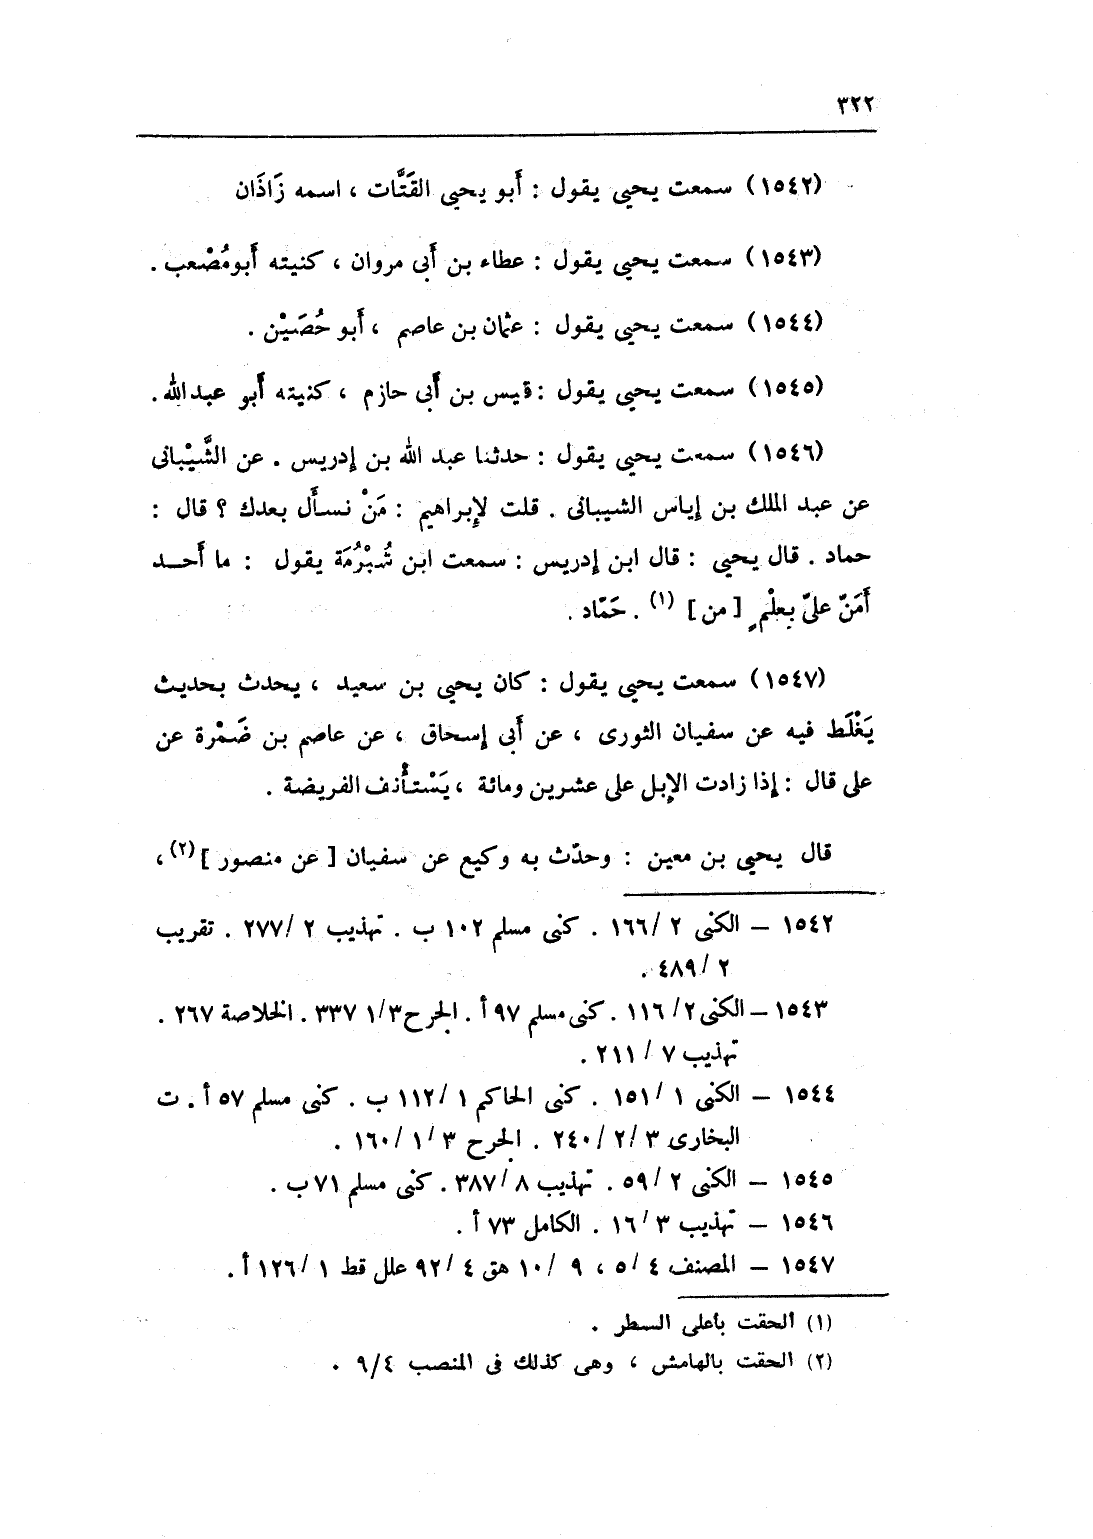 ٣٢٢
(١٥٤٢) سمعت يحيى يقول : أَبو يحيى القَتَّات ، اسمه زَاذَان
(١٥٤٣) سمعت يحيى يقول : عطاء بن أَبى مروان ، كنيته أَبومُصْعب .
(١٥٤٤) سمعت يحيى يقول : عثمان بن عاصم ، أَبو حُصَيْن .
(١٥٤٥) سمعت يحيى يقول : قيس بن أَبى حازم ، كنيته أَبو عبدالله .
(١٥٤٦) سمعت يحيى يقول : حدثنا عبد الله بن إدريس . عن الشَّيْبانى
عن عبد الملك بن إياس الشيبانى . قلت لإبراهيم : مَنْ نسأَل بعدك ؟ قال :
حماد . قال يحيى : قال ابن إدريس : سمعت ابن شُبْرُمَة يقول : ما أَحــد
أَمَنّ علىّ بِعلْمٍ [ من ] (١) . حَمّاد .
(١٥٤٧) سمعت يحيى يقول : كان يحيى بن سعيد ، يحدث بحديث
يَغْلَط فيه عن سفيان الثورى ، عن أَبى إسحاق ، عن عاصم بن ضَمْرة عن
على قال : إذا زادت الإبل على عشرين ومائة ، يَسْتأْنف الفريضة .
قال يحيى بن معين : وحدّث به وكيع عن سفيان [ عن منصور ] (٢) ،
١٥٤٢ – الكنى ٢ /١٦٦ . كنى مسلم ١٠٢ ب . تهذيب ٢ /٢٧٧ . تقريب
٢ /٤٨٩ .
١٥٤٣ – الكنى ٢/ ١١٦ . كنى مسلم ٩٧ أ . الجرح ٣/١ ٣٣٧ . الخلاصة ٢٦٧ .
تهذيب ٧ / ٢١١ .
١٥٤٤ – الكنى ١ /١٥١ . كنى الحاكم ١ /١١٢ ب . كنى مسلم ٥٧ أ . ت
البخارى ٣ /٢ /٢٤٠ . الجرح ٣ /١ /١٦٠ .
١٥٤٥ – الكنى ٢ /٥٩ . تهذيب ٨ /٣٨٧ . كنى مسلم ٧١ ب .
١٥٤٦ – تهذيب ٣ /١٦ . الكامل ٧٣ أ .
١٥٤٧ – المصنف ٤ /٥ ، ٩ /١٠ هق ٤ /٩٢ علل قط ١ /١٢٦ أ .
(١) ألحقت بأعلى السطر .
(٢) الحقت بالهامش ، وهى كذلك فى المنصب ٩/٤ .